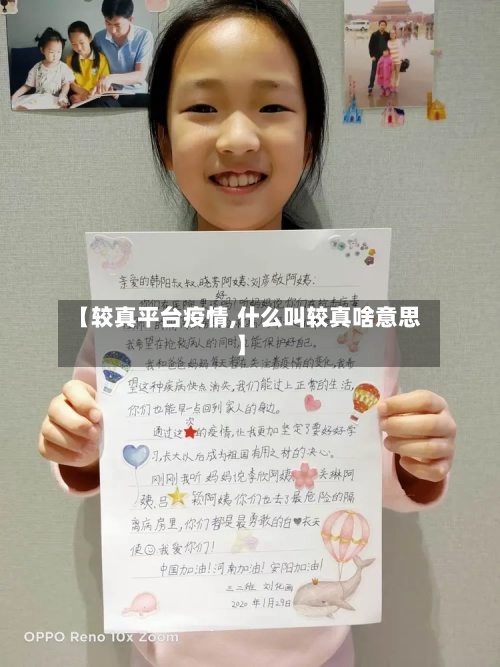 亲爱的韩阳叔叔,晓芳阿姨,刘彦敬阿姨:
【较真平台疫情,什么叫较真啥意思
】
我希望在抢救病人的同时 能保护好自己。
我和爸爸妈妈每天都在关注着疫情的变化,我希
望这种疾病快点消失,我们能过上正常的生活,
你们也能早一点回到家人的身边。
通过这次的疫情,让我更加坚定了要好好学
习,长大以后成为祖国有用之材的决心。
刚刚我听妈妈说李欣阿姨 琳阿
姨,吕 颖阿姨,你们也去了最危险的隔
离病房里,你们都是最勇敢的白衣天
使 我爱你们!
中国加油!河南加油!安阳加油!
三二班 刘
2020年1月29日
OPPO Reno 10x Zoom